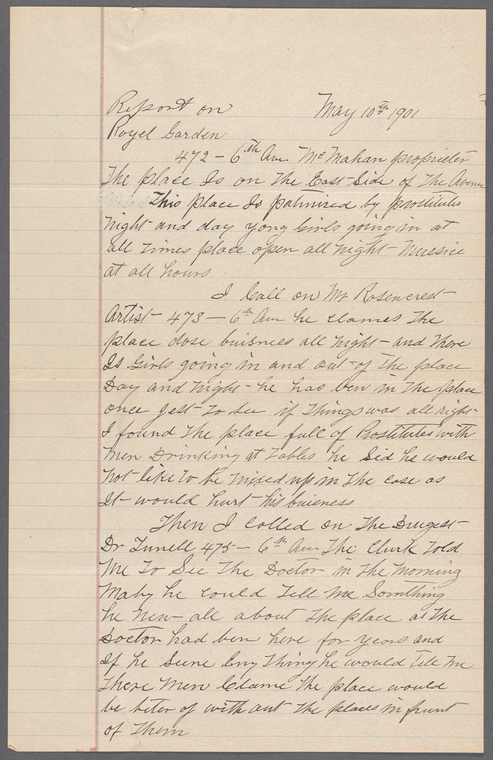 Report on May 10th 1901
Royel Garden
472 - 6th Ave McMahan proprietor
The place Is on The East Side of The Avenue
This place Is patnired by prostitutes
Night and day yong Girls going in at
all Times place open all Night Mussic
at all hours
I Call on Mr Rosencrest
Artist - 473 - 6th Ave he clames The
place dose buisnies all Night - and There
Is Girls going in and out of The place
Day and Night - he has ben in The place
once Jest To See if Things was all right
I found The place full of Prostitutes with
Men Drinking at Tables he Sid he would
Not like To be Mixed up in The case as
It would hurt his buiness
Then I called on The Drugest
Dr Tunell 475 - 6th Ave The Clurk Told
Me To See The Doctor in The Morning
Maby he could Tell Me Somthing
he New all about The place as The
Doctor had ben here for years and
If he Seene Eny Thing he would Tell Me
These Men Clame The place would
be beter of with out The places in frunt
of Them